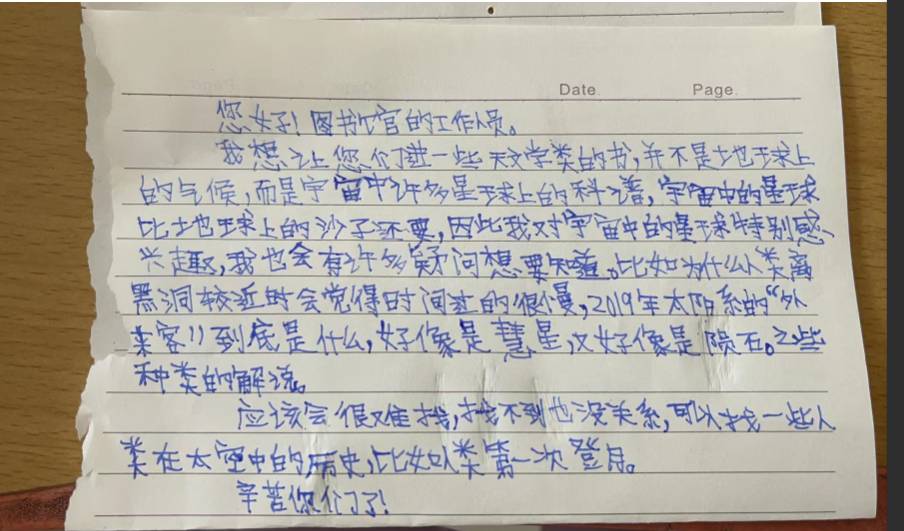 Date. Page.
您好！图书馆的工作人员。
我想让您们进一些天文学类的书，并不是地球上
的气候，而是宇宙中许多星球上的科谱，宇宙中的星球
比地球上的沙子还要，因此我对宇宙中的星球特别感
兴趣，我也会有许多疑问想要知道。比如为什么人类离
黑洞较近时会觉得时间过的很慢，2019年太阳系的“外
来客”到底是什么，好像是慧星，又好像是陨石。之些
种类的解说。
应该会很难找，找不到也没关系，可以找一些人
类在太空中的历史，比如人类第一次登月。
辛苦你们了！